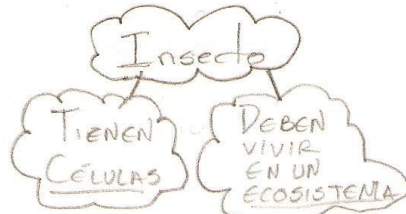 Insecto
TIENEN
CÉLULAS
DEBEN
VIVIR
EN UN
ECOSISTEMA